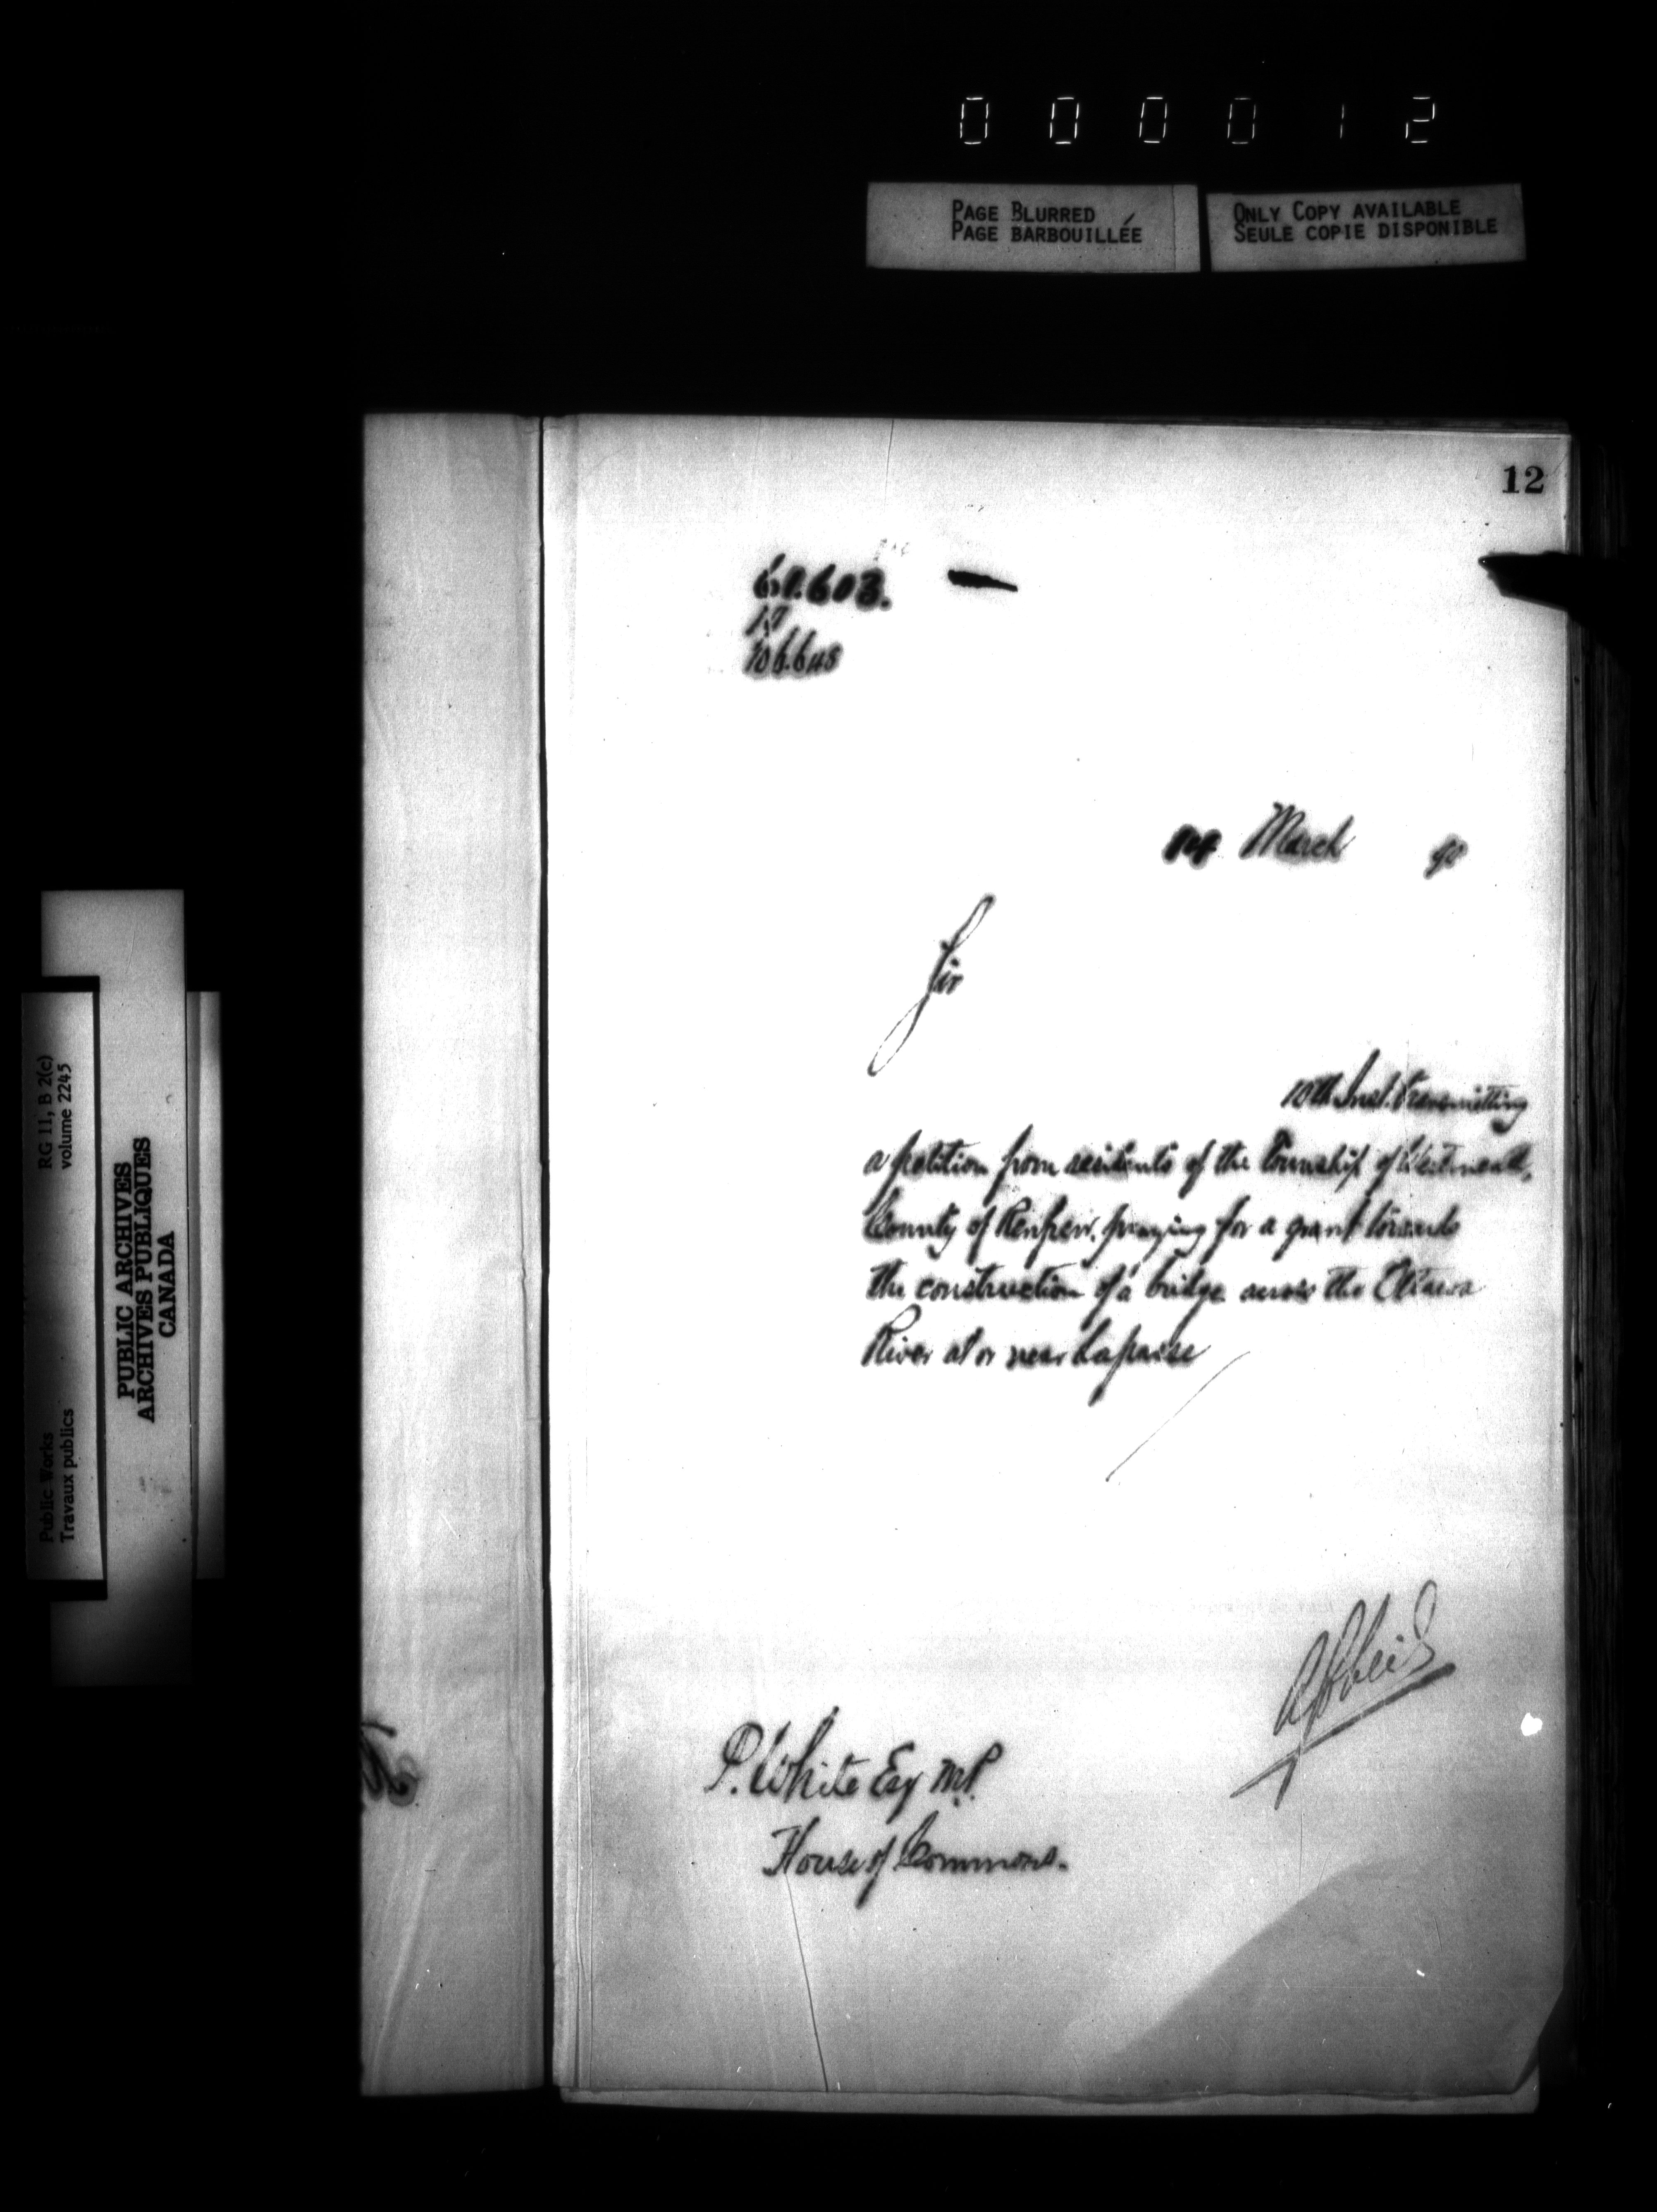 000012
PAGE BLURRED
PAGE BARBOUILLÉE
ONLY COPY AVAILABLE
SEULE COPIE DISPONIBLE
12
603.
17
106.648
March 90
Sir
10th Inst. transmitting
a petition from residents of the Township of Westmeath,
County of Renfrew, praying for a grant towards
the construction of a bridge across the Ottawa
River at or near Lapasse
P. White Esq M.P.
House of Commons.
RG 11, B 2(c)
volume 2245
Public Works
Travaux publics
PUBLIC ARCHIVES
ARCHIVES PUBLIQUES
CANADA